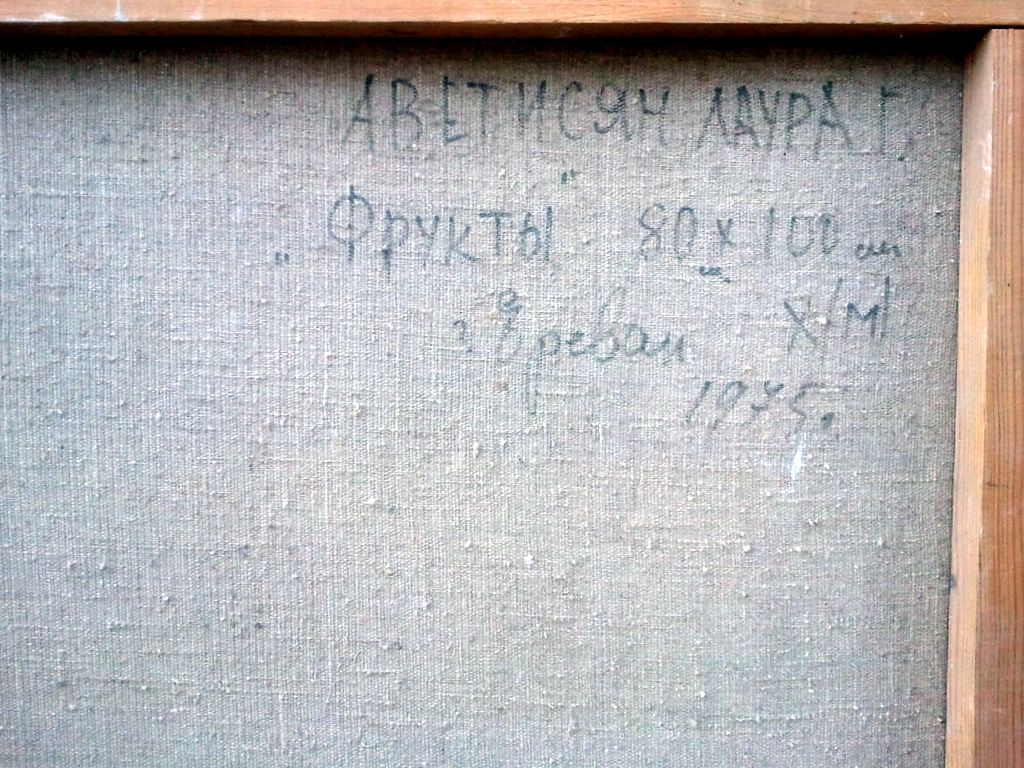 АВЕТИСЯН ЛАУРА Г.
„Фрукты" 80 х 100 см
г. Ереван х/м
1975.